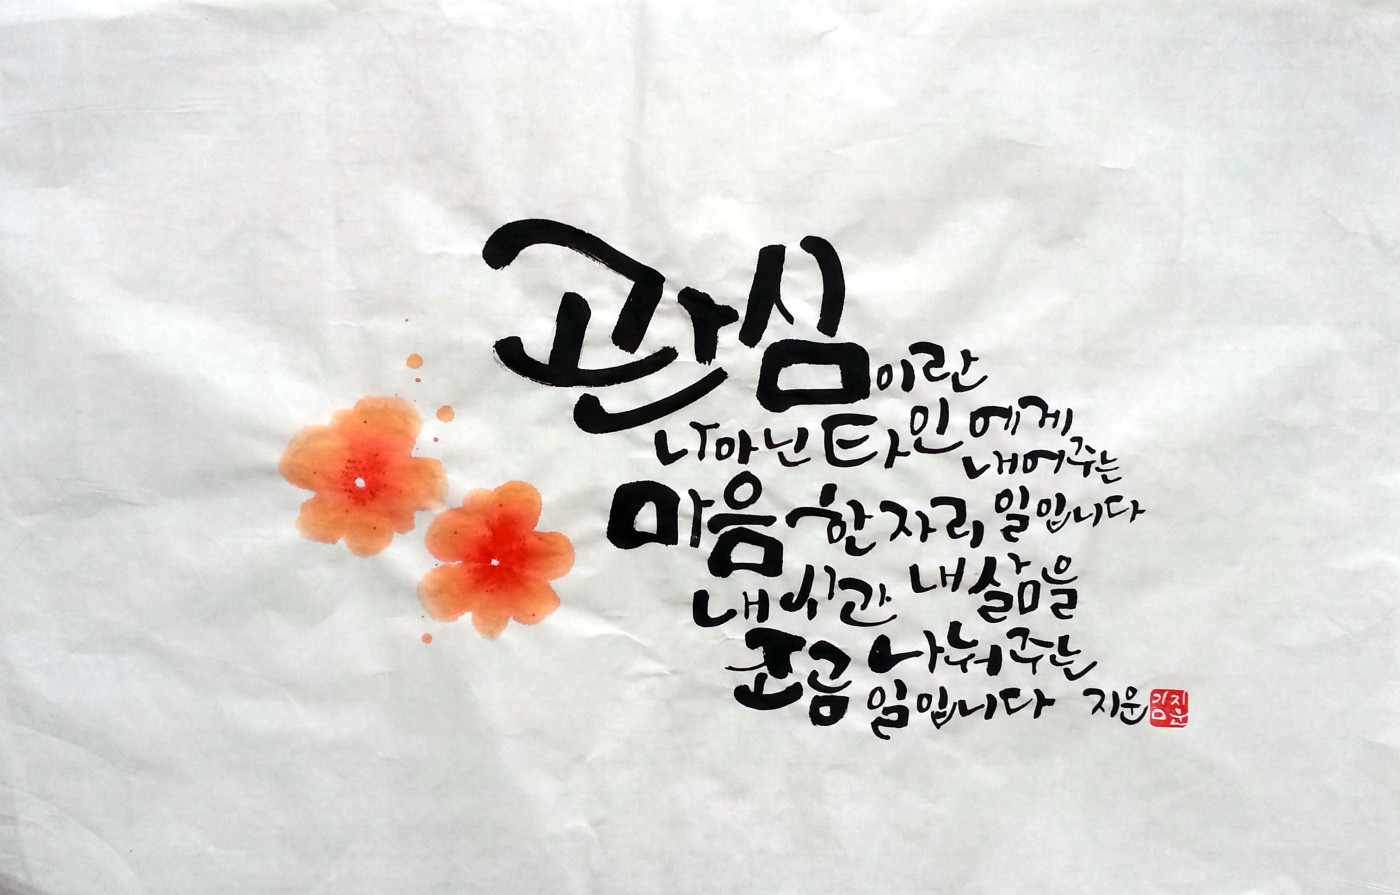 관심이란
나 아닌 타인에게
내어주는
마음 한 자리 일입니다
내 시간 내 삶을
조금 나눠주는
일입니다 지운
김지운